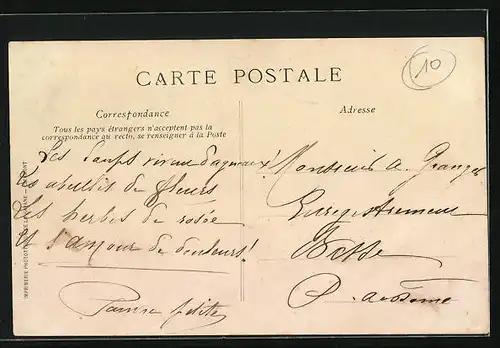 CARTE POSTALE
10
Correspondance
Tous les pays étrangers n'acceptent pas la
correspondance au recto, se renseigner à la Poste
Les loups vivent d'agneaux!
Les abeilles de fleurs
Les herbes de rosée
Et l'amour de douleurs!
petite
Adresse
Monsieur A. Granget
Enregistrement
P. de Dôme
IMPRIMERIE